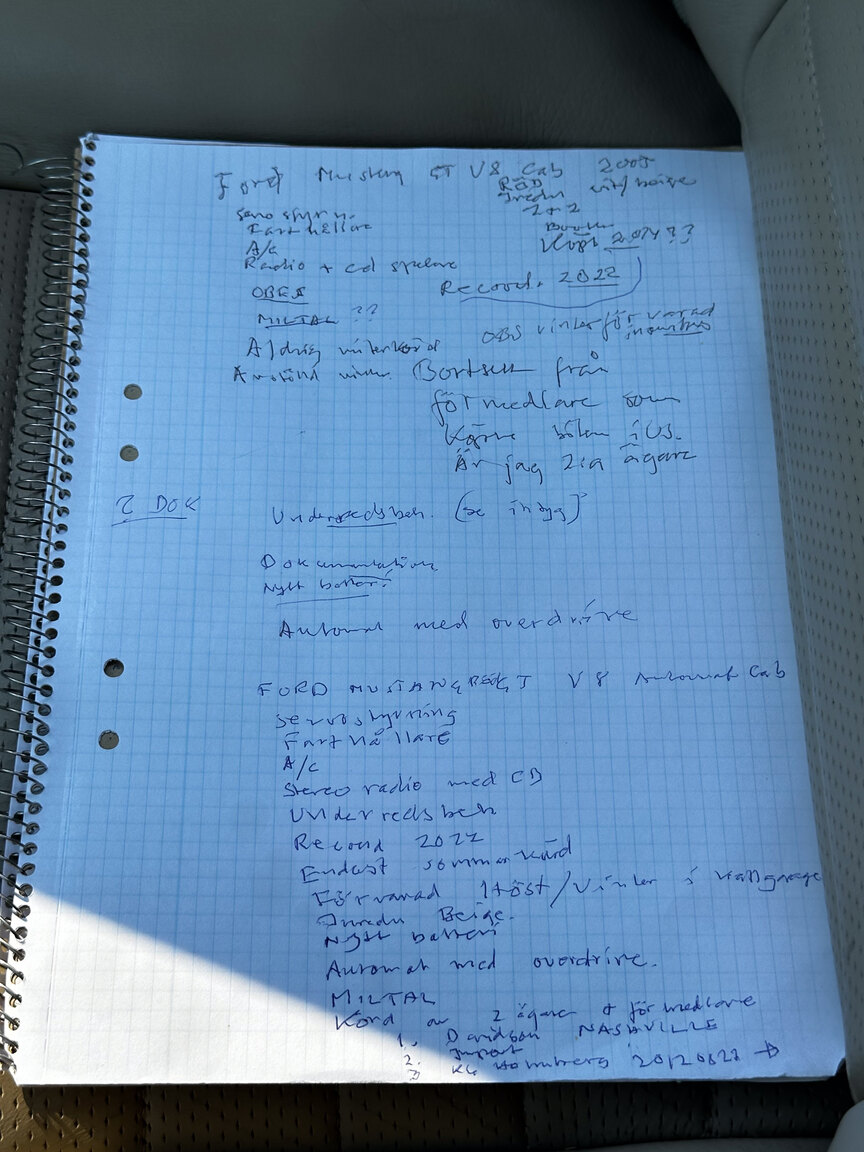 Ford Mustang GT V8 Cab 2005
RÖD
Inredn vit/beige
2+2
Servostyrn.
Farthållare
A/C
Radio + cd spelare
2024 ??
OBES
Record. 2022
MILTAL ??
OBS vinterförvarad
Aldrig vinterkörd
Använd Bortsett från
förmedlare som
Körne bilen i US.
Är jag 2:a ägare
2 DOK
Underredsbeh. (se intyg)
Dokumentation
Nytt batteri
Automat med overdrive
FORD MUSTANG GT V8 Automat Cab
Servostyrning
Farthållare
A/C
Stereo radio med CD
Underredsbeh
Record 2022
Endast sommarkörd
Förvarad Höst/Vinter i
Inredn Beige.
Nytt batteri
Automat med overdrive.
MILTAL
Körd av 2 ägare + förmedlare
1. Davidson NASHVILLE
2. Import
3 Holmberg 20120627 →